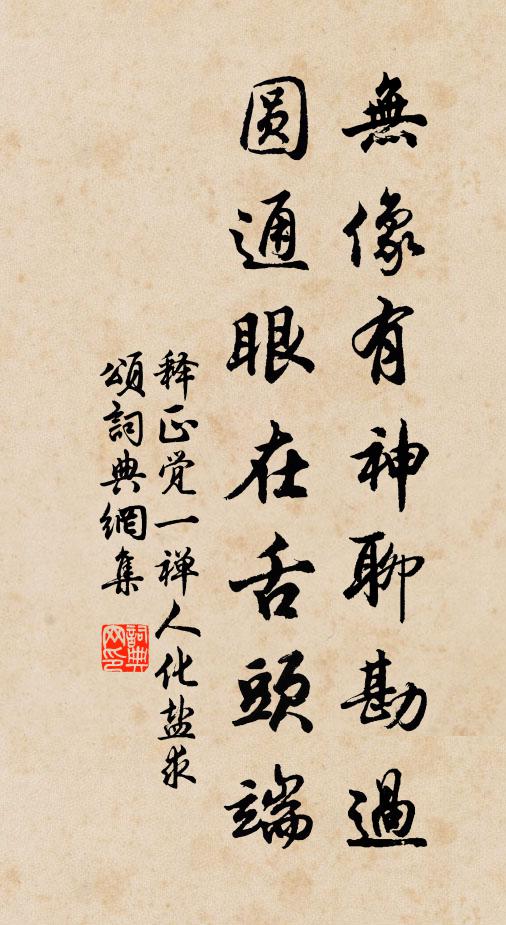 無像有神聊勘過
圆通眼在舌頭端
释正觉一禅人化盐求
頌詞典網集
詞典
网印